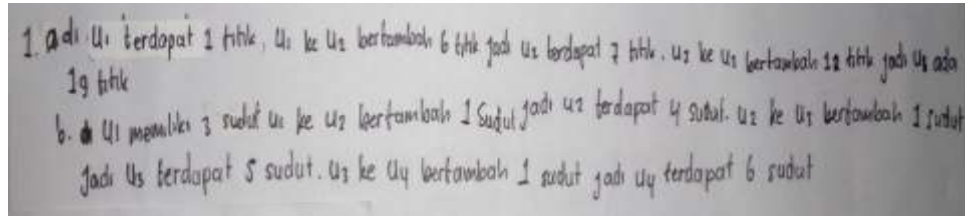 1. a di U1 terdapat 1 titik, U1 ke U2 bertambah 6 titik jadi U2 terdapat 7 titik. U2 ke U3 bertambah 12 titik jadi U3 ada
19 titik
b. U1 memiliki 3 sudut U1 ke U2 bertambah 1 sudut jadi U2 terdapat 4 sudut. U2 ke U3 bertambah 1 sudut
Jadi U3 terdapat 5 sudut. U3 ke U4 bertambah 1 sudut jadi U4 terdapat 6 sudut